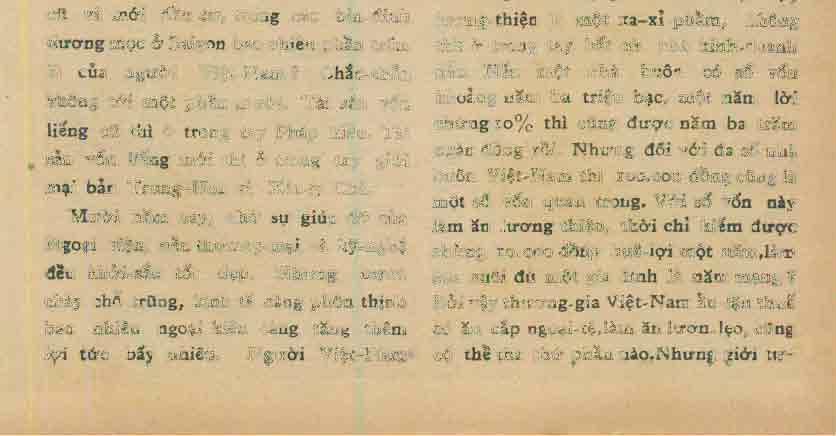 cũ và mới đầu tư, trong các bản định
dương mọc ở Saigon bao nhiêu phần trăm
là của người Việt-Nam? Chắc-chắn
không tới một phần mười. Tài sản vốn
liếng cũ thì ở trong tay Pháp kiều. Tài
sản vốn liếng mới thì ở trong tay giới
mại bản Trung-Hoa và
Mười năm nay, nhờ sự giúp đỡ của
ngoại viện, nền thương-mại và kỹ-nghệ
đều khởi-sắc tốt đẹp. Nhưng nước
chảy chỗ trũng, kinh tế càng phồn thịnh
bao nhiêu ngoại kiều càng tăng thêm
lợi tức bấy nhiêu. Người Việt-Nam
lương thiện là một xa-xỉ phẩm, không
thể ở trong tay bất cứ nhà kinh-doanh
nào. Nếu một nhà buôn có số vốn
khoảng năm ba triệu bạc, một năm lời
chừng 10% thì cũng được năm ba trăm
ngàn đồng rồi. Nhưng đối với đa số nhà
buôn Việt-Nam thì 100.000 đồng cũng là
một số vốn quan trọng. Với số vốn này
làm ăn lương thiện, thời chỉ kiếm được
chừng 10.000 đồng huê-lợi một năm, làm
sao nuôi đủ một gia đình là năm mạng?
Bởi vậy thương-gia Việt-Nam ẩn lận thuế
má ăn cắp ngoại-tệ, làm ăn lươn lẹo, cũng
có thể tha thứ phần nào. Nhưng giới tư-